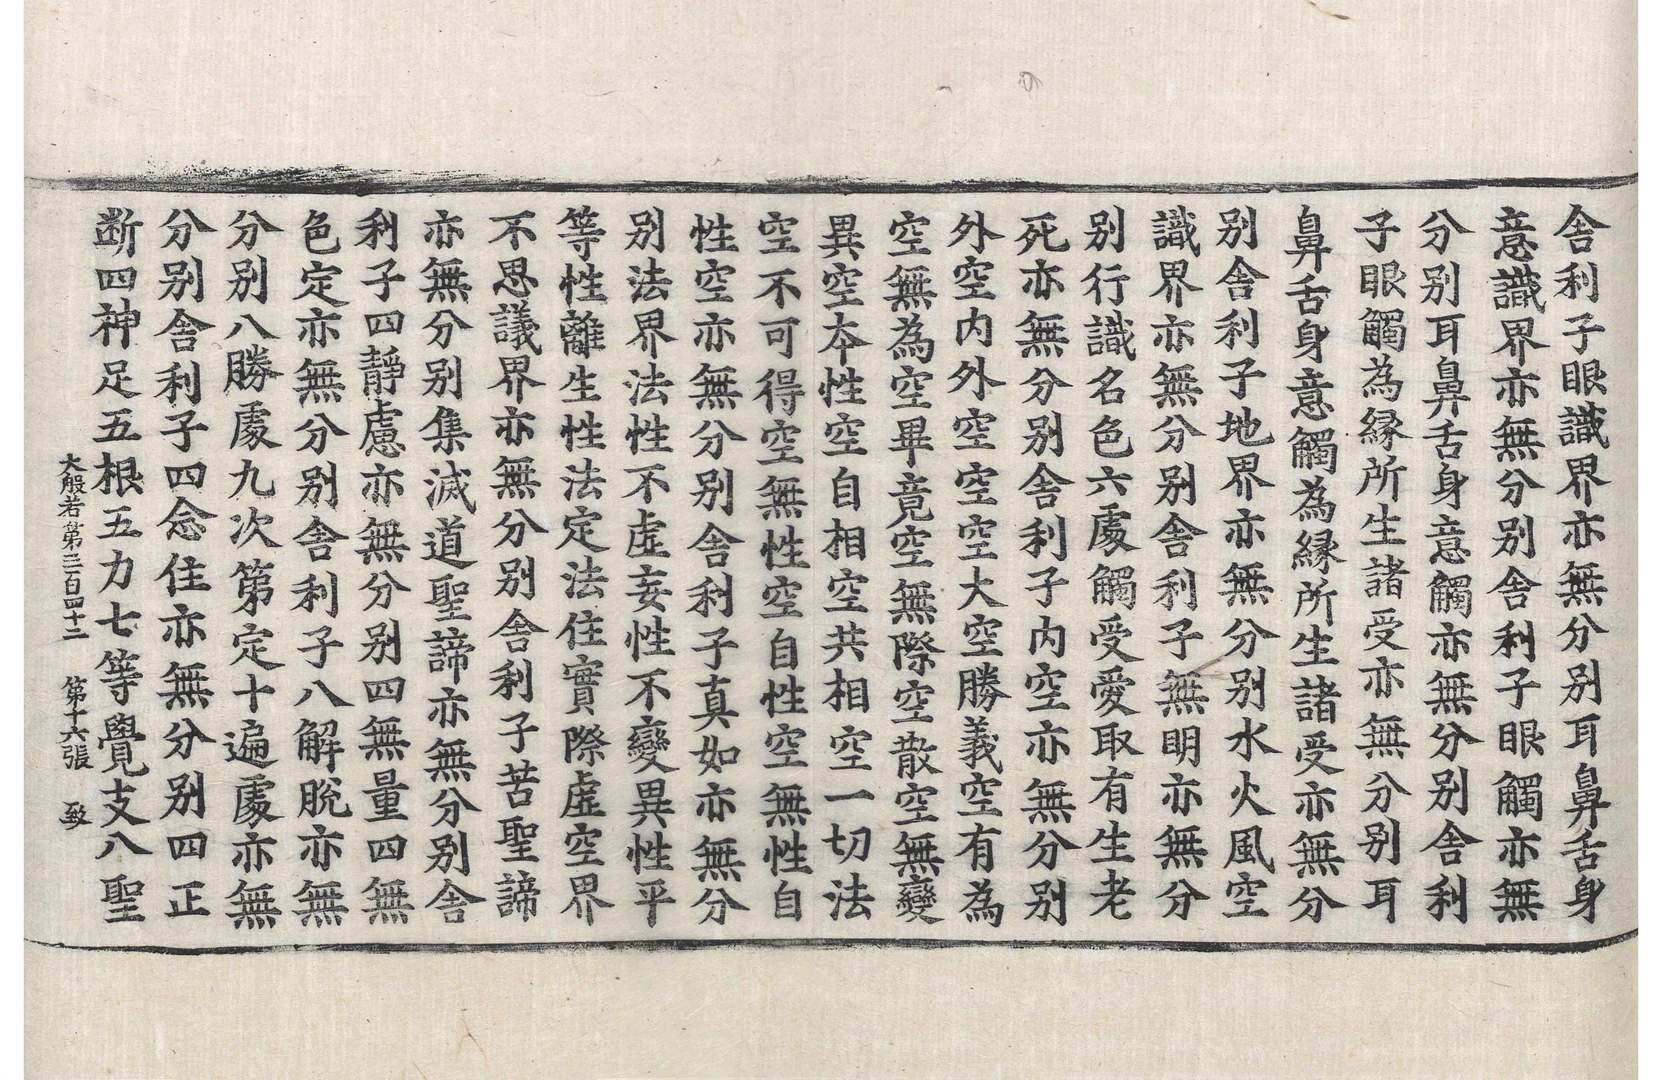 舍利子眼識界亦無分别耳鼻舌身
意識界亦無分别舍利子眼觸亦無
分别耳鼻舌身意觸亦無分别舍利
子眼觸為縁所生諸受亦無分别耳
鼻舌身意觸為縁所生諸受亦無分
别舍利子地界亦無分别水火風空
識界亦無分别舍利子無明亦無分
别行識名色六處觸受愛取有生老
死亦無分别舍利子内空亦無分别
外空内外空空空大空勝義空有為
空無為空畢竟空無際空散空無變
異空本性空自相空共相空一切法
空不可得空無性空自性空無性自
性空亦無分别舍利子真如亦無分
别法界法性不虚妄性不變異性平
等性離生性法定法住實際虚空界
不思議界亦無分别舍利子苦聖諦
亦無分别集滅道聖諦亦無分别舍
利子四靜慮亦無分别四無量四無
色定亦無分别舍利子八解脫亦無
分别八勝處九次第定十遍處亦無
分别舍利子四念住亦無分别四正
断四神足五根五力七等覺支八聖
大般若第三百四十二 第十六張 致